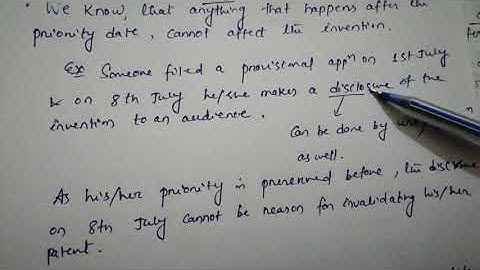 • We know, that anything that happens after the
priority date, cannot affect the invention.
Ex Someone filed a provisional appn on 1st July
& on 8th July he/she makes a disclosure of the
invention to an audience.
Can be done by
as well.
As his/her priority is preserved before, the disclosure
on 8th July cannot be reason for invalidating his/her
patent.